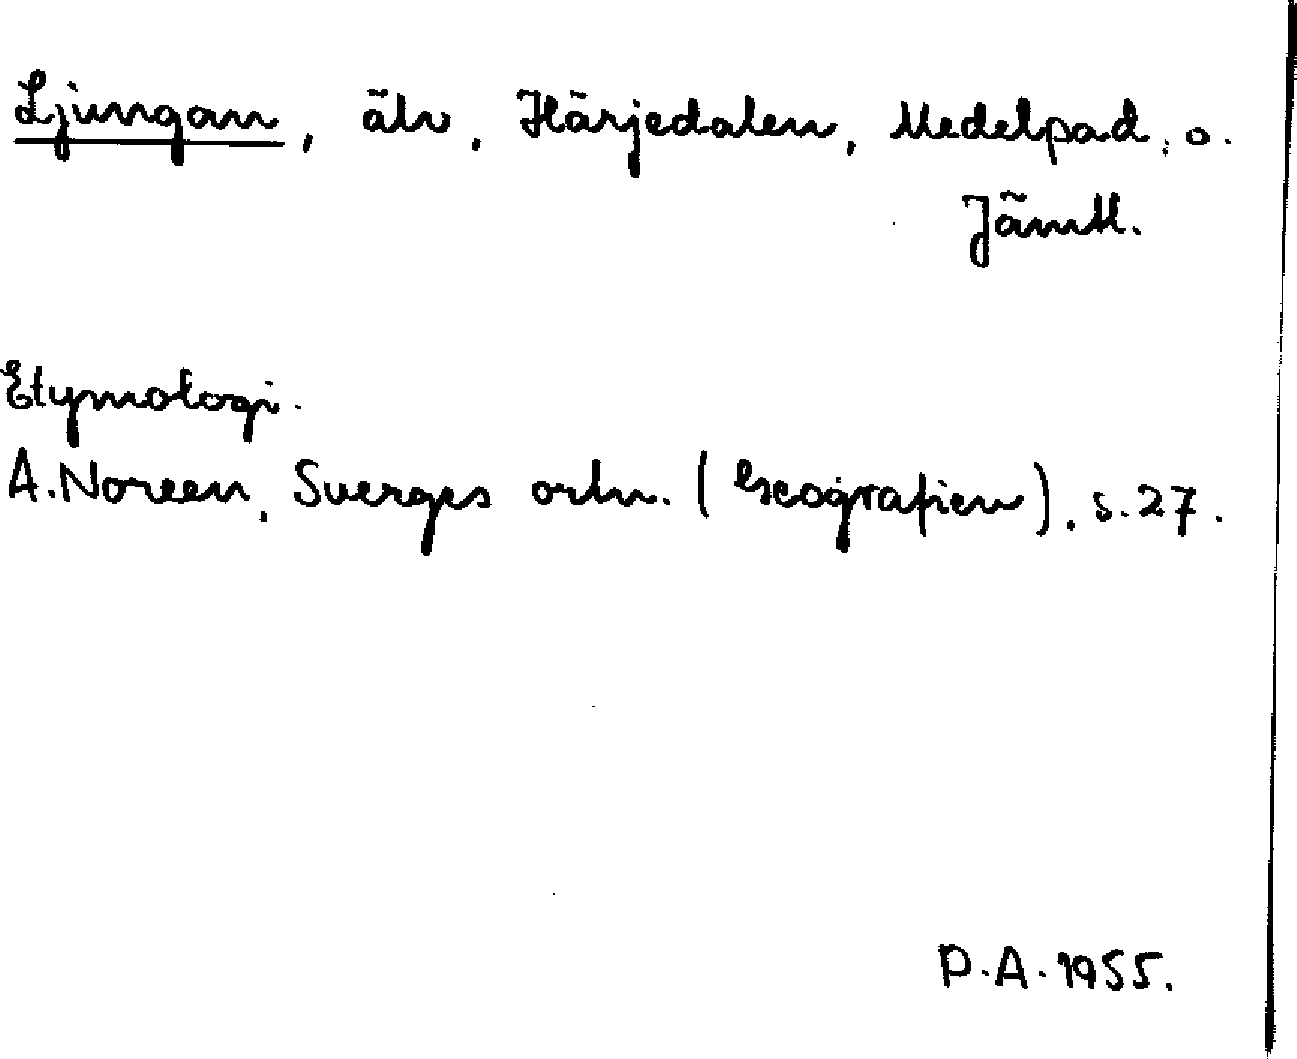 Ljungan, älv, Härjedalen, Medelpad, o.
Jämtl.
Etymologi.
A. Noreen, Sverges ortn. (Geografien), s. 27.
P.A. 1955.